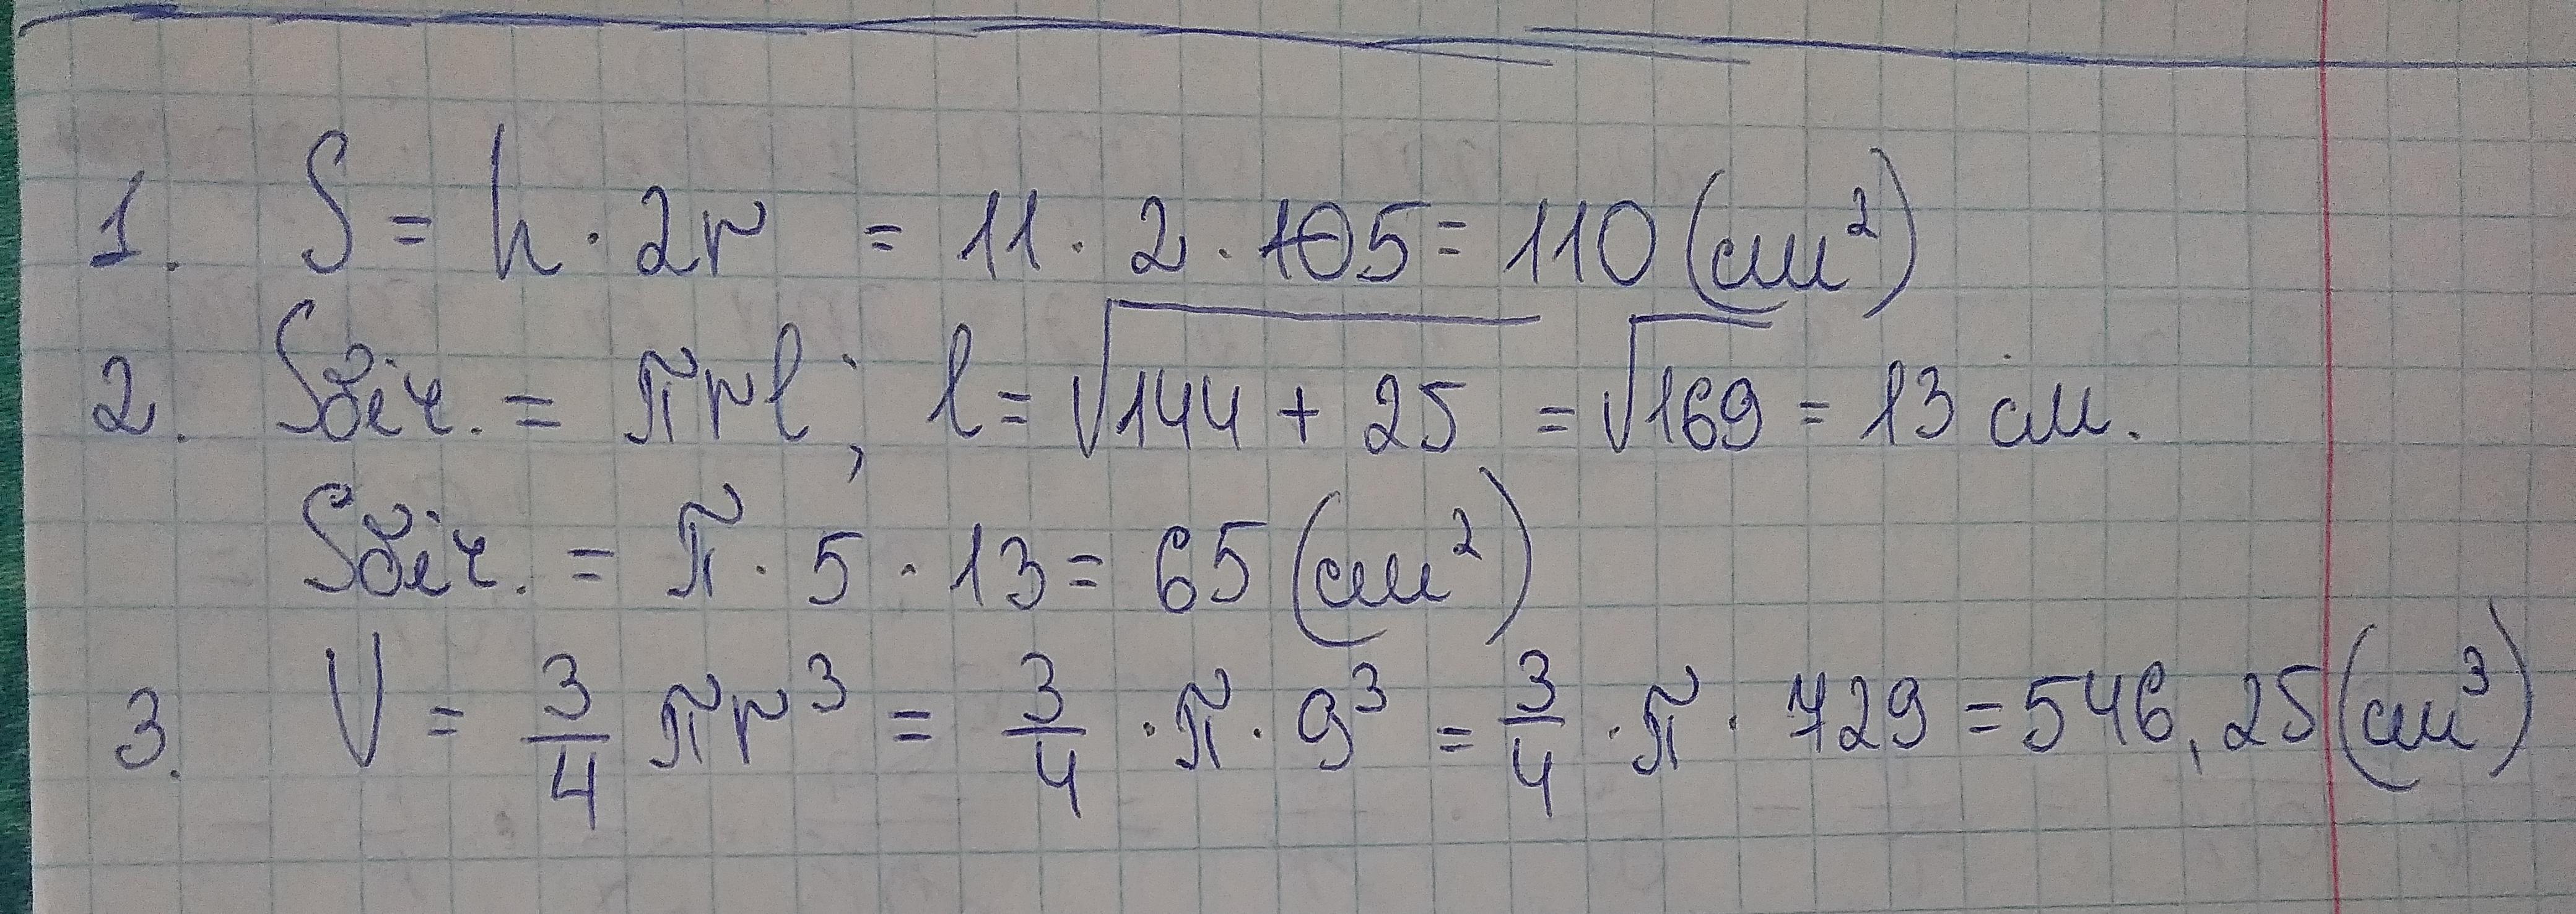 1. S = h · 2r = 11 · 2 · 5 = 110 (см²)
2. Sбіч. = πrl; l = √144 + 25 = √169 = 13 см.
Sбіч. = π · 5 · 13 = 65 (см²)
3. V = 3/4 πr³ = 3/4 · π · 9³ = 3/4 · π · 729 = 546,25 (см³)